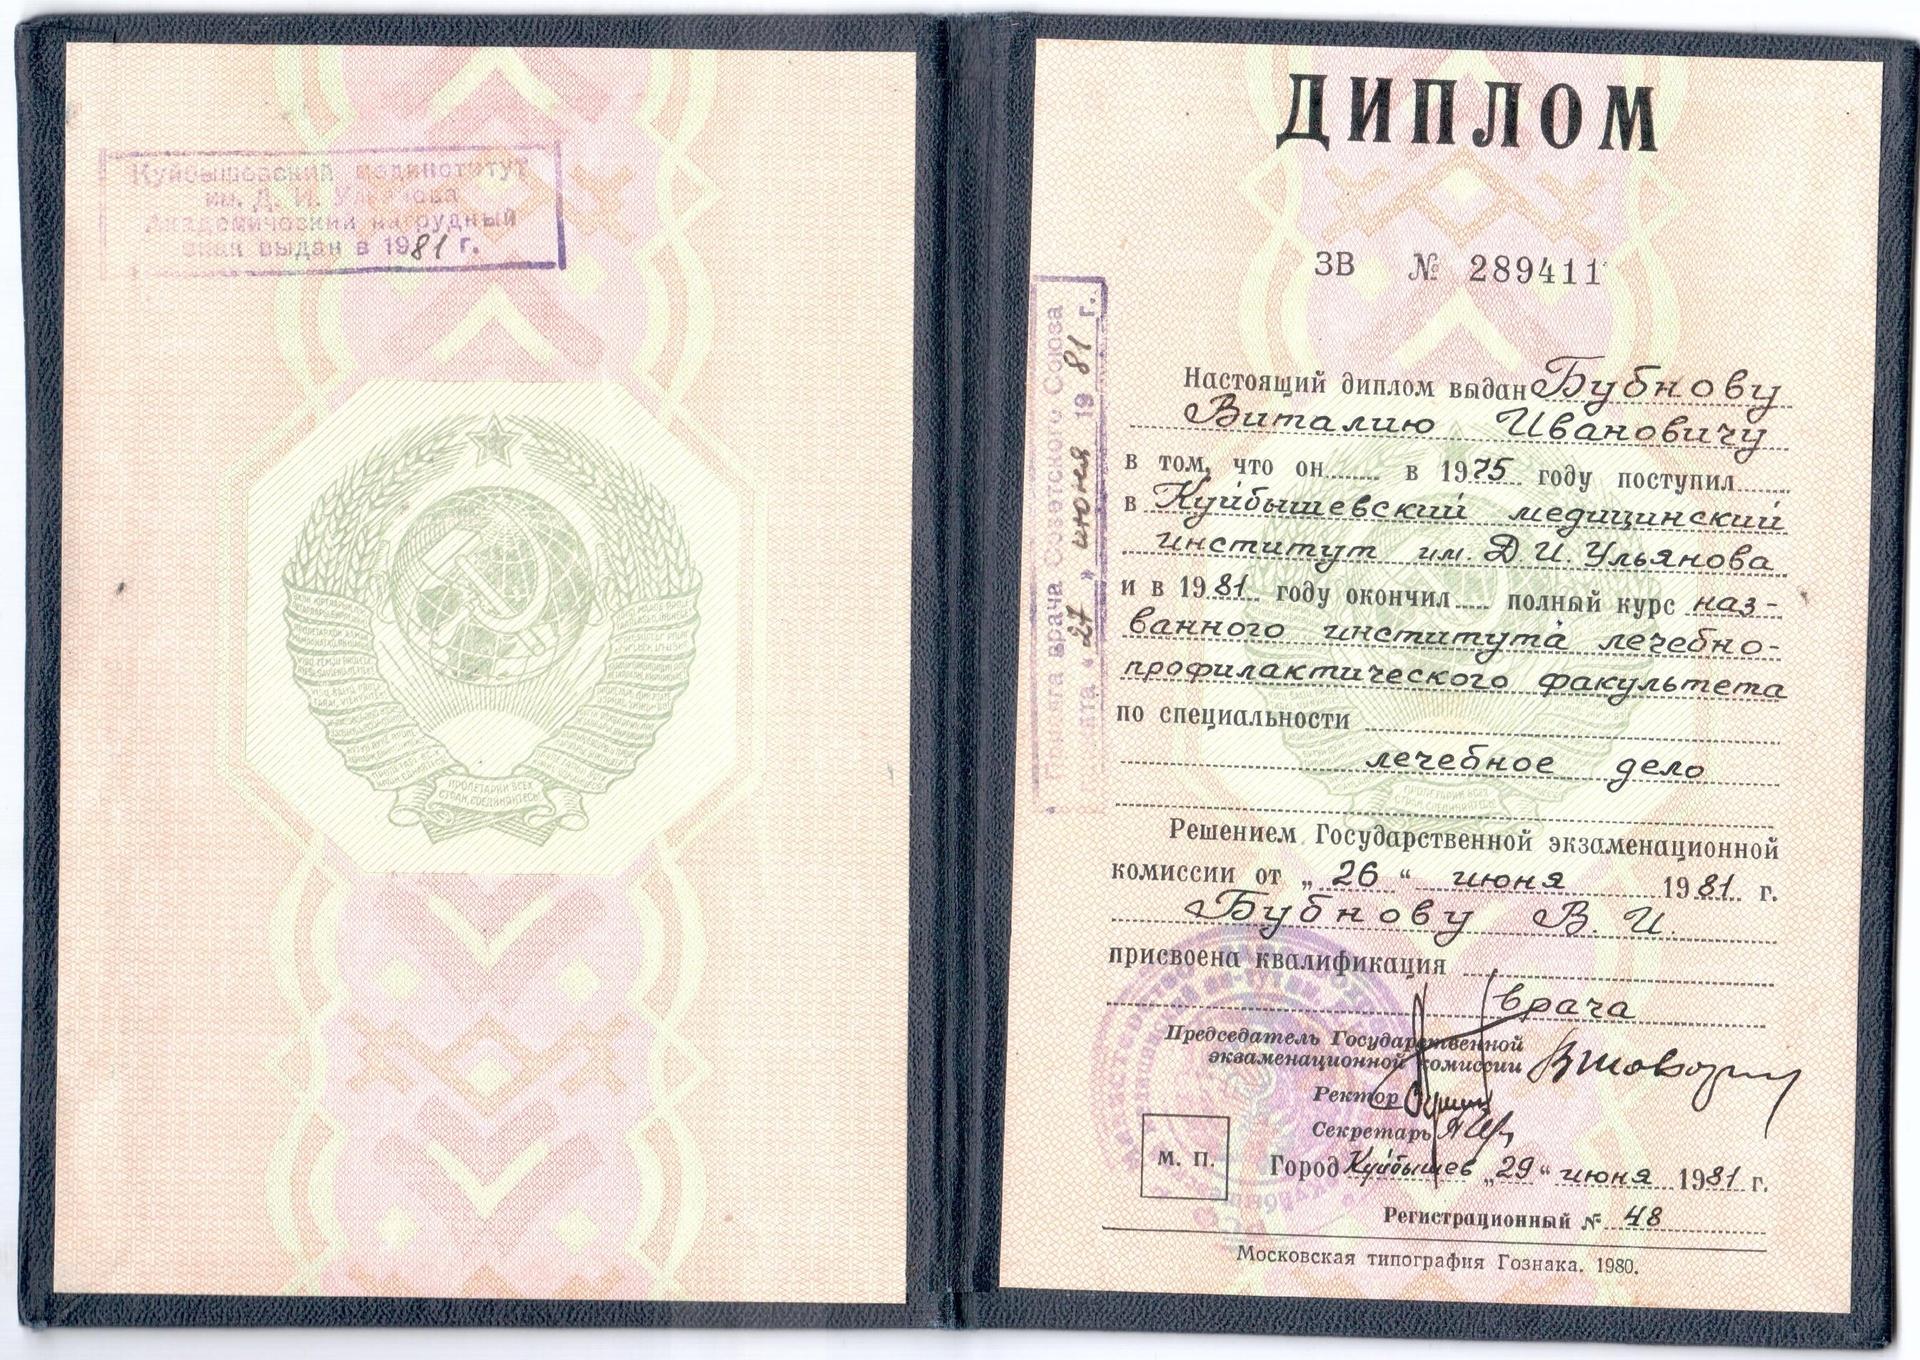 Куйбышевский мединститут
им. Д. И. Ульянова
Академический нагрудный
знак выдан в 1981 г.
ПРОЛЕТАРИИ ВСЕХ
СТРАН, СОЕДИНЯЙТЕСЬ!
ДИПЛОМ
ЗВ № 289411
врача Советского Союза
„27" июня 1981 г.
Настоящий диплом выдан Бубнову
Виталию Ивановичу
в том, что он в 1975 году поступил
в Куйбышевский медицинский
институт им. Д. И. Ульянова
и в 1981 году окончил полный курс наз-
ванного института лечебно-
профилактического факультета
по специальности
лечебное дело
Решением Государственной экзаменационной
комиссии от „26" июня 1981 г.
Бубнову В. И.
присвоена квалификация
врача
Председатель Государственной
экзаменационной комиссии
Ректор
Секретарь
М. П.
Город Куйбышев „29" июня 1981 г.
Регистрационный № 48
Московская типография Гознака. 1980.